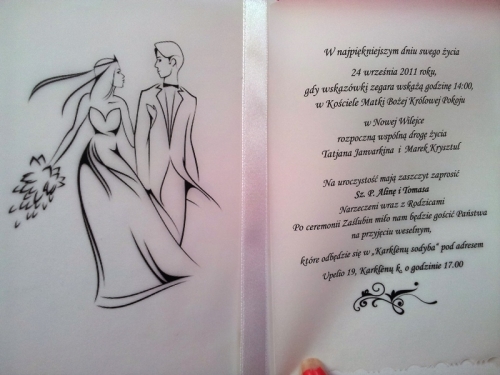 W najpiękniejszym dniu swego życia
24 września 2011 roku,
gdy wskazówki zegara wskażą godzinę 14:00,
w Kościele Matki Bożej Królowej Pokoju
w Nowej Wilejce
rozpoczną wspólną drogę życia
Tatjana Janvarkina i Marek Krysztul
Na uroczystość mają zaszczyt zaprosić
Sz. P. Alinę i Tomasa
Narzeczeni wraz z Rodzicami
Po ceremonii Zaślubin miło nam będzie gościć Państwa
na przyjęciu weselnym,
które odbędzie się w „Karklėnų sodyba" pod adresem
Upelio 19, Karklėnų k. o godzinie 17.00